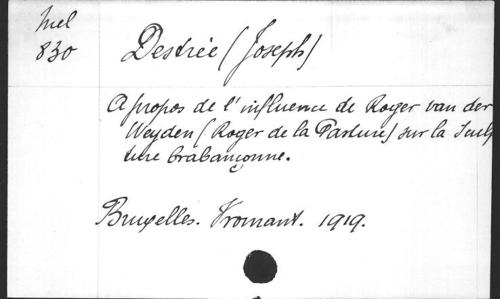 Mel
830
Destrée (Joseph)
A propos de l'influence de Roger van der
Weyden (Roger de la Pasture) sur la Sculp
ture brabançonne.
Bruxelles. Vromant. 1919.